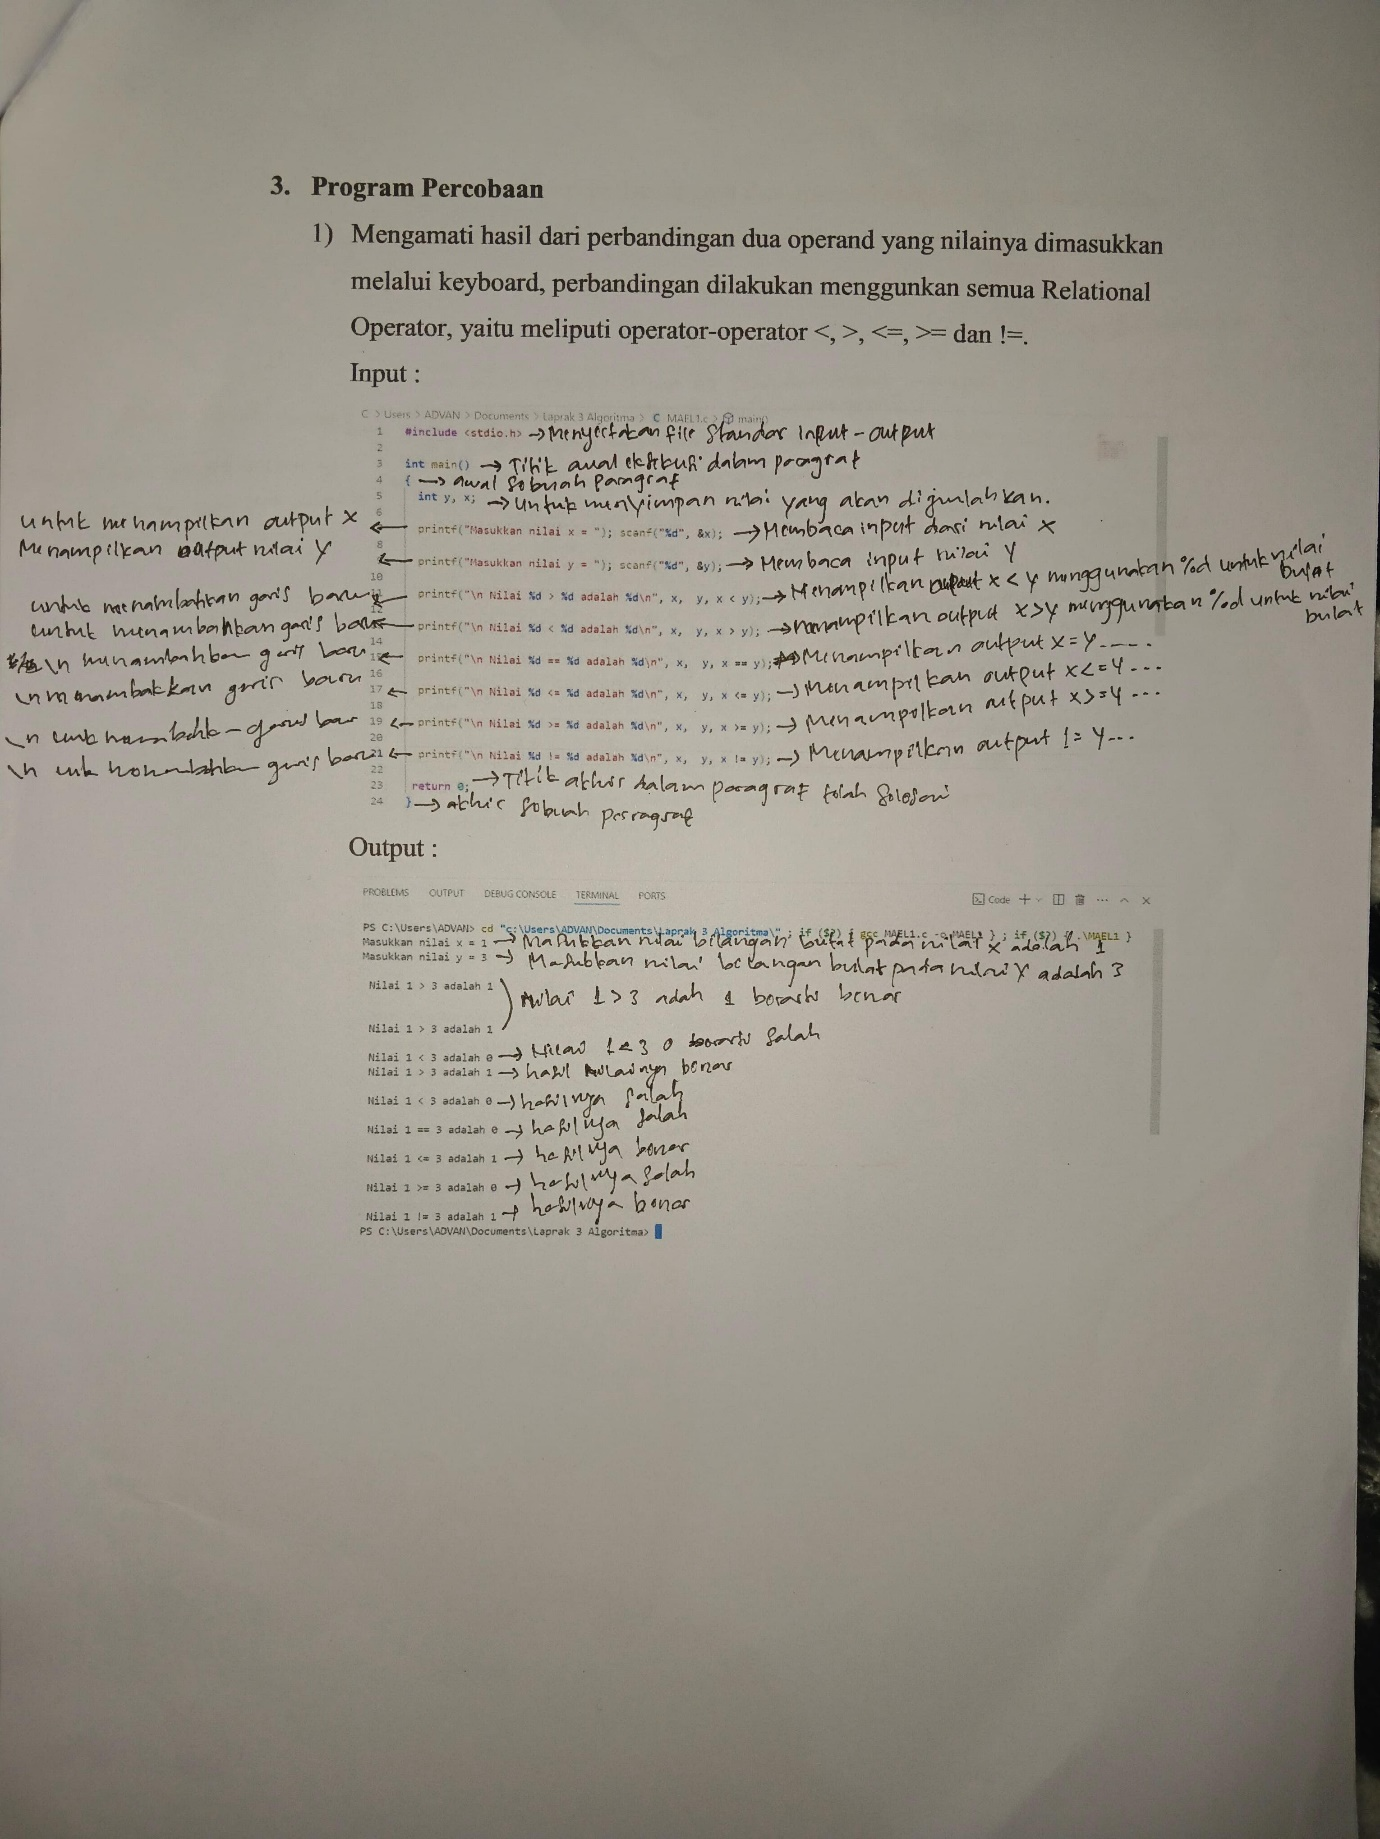 3. Program Percobaan
1) Mengamati hasil dari perbandingan dua operand yang nilainya dimasukkan
melalui keyboard, perbandingan dilakukan menggunkan semua Relational
Operator, yaitu meliputi operator-operator <, >, <=, >= dan !=.
Input :
C > Users > ADVAN > Documents > Laprak 3 Algoritma > C MAEL1.c > main()
1 #include <stdio.h> → Menyertakan file Standar input - output
2
3 int main() → Titik awal eksekusi dalam paragraf
4 { → awal sebuah paragraf
5 int y, x; → untuk menyimpan nilai yang akan dijumlahkan.
6
untuk menampilkan output x ← printf("Masukkan nilai x = "); scanf("%d", &x); → Membaca input dari nilai x
8
Menampilkan output nilai y ← printf("Masukkan nilai y = "); scanf("%d", &y); → Membaca input nilai y
10
untuk menambahkan garis baru ← printf("\n Nilai %d > %d adalah %d\n", x, y, x < y); → Menampilkan output x < y menggunakan %d untuk nilai bulat
12
untuk menambahkan garis baru ← printf("\n Nilai %d < %d adalah %d\n", x, y, x > y); → menampilkan output x>y menggunakan %d untuk nilai bulat
14
\n menambahkan garis baru 15 ← printf("\n Nilai %d == %d adalah %d\n", x, y, x == y); → Menampilkan output x = y ....
16
\n menambahkan garis baru 17 ← printf("\n Nilai %d <= %d adalah %d\n", x, y, x <= y); → Menampilkan output x<=y ...
18
\n garis bar 19 ← printf("\n Nilai %d >= %d adalah %d\n", x, y, x >= y); → Menampilkan output x>=y ...
20
\n garis baru 21 ← printf("\n Nilai %d != %d adalah %d\n", x, y, x != y); → Menampilkan output != y...
22
23 return 0; → Titik akhir dalam paragraf telah selesai
24 } → akhir sebuah paragraf
Output :
PROBLEMS OUTPUT DEBUG CONSOLE TERMINAL PORTS Code
PS C:\Users\ADVAN> cd "c:\Users\ADVAN\Documents\Laprak 3 Algoritma\" ; if ($?) { gcc MAEL1.c -o MAEL1 } ; if ($?) { .\MAEL1 }
Masukkan nilai x = 1 → Masukkan nilai bilangan bulat pada nilai x adalah 1
Masukkan nilai y = 3 → Masukkan nilai bilangan bulat pada nilai y adalah 3
Nilai 1 > 3 adalah 1
Nilai 1>3 adah 1 berarti benar
Nilai 1 > 3 adalah 1
Nilai 1 < 3 adalah 0 → Nilai 1<3 0 berarti Salah
Nilai 1 > 3 adalah 1 → hasil nilainya benar
Nilai 1 < 3 adalah 0 → hasilnya salah
Nilai 1 == 3 adalah 0 → hasilnya salah
Nilai 1 <= 3 adalah 1 → hasilnya benar
Nilai 1 >= 3 adalah 0 → hasilnya salah
Nilai 1 != 3 adalah 1 → hasilnya benar
PS C:\Users\ADVAN\Documents\Laprak 3 Algoritma>